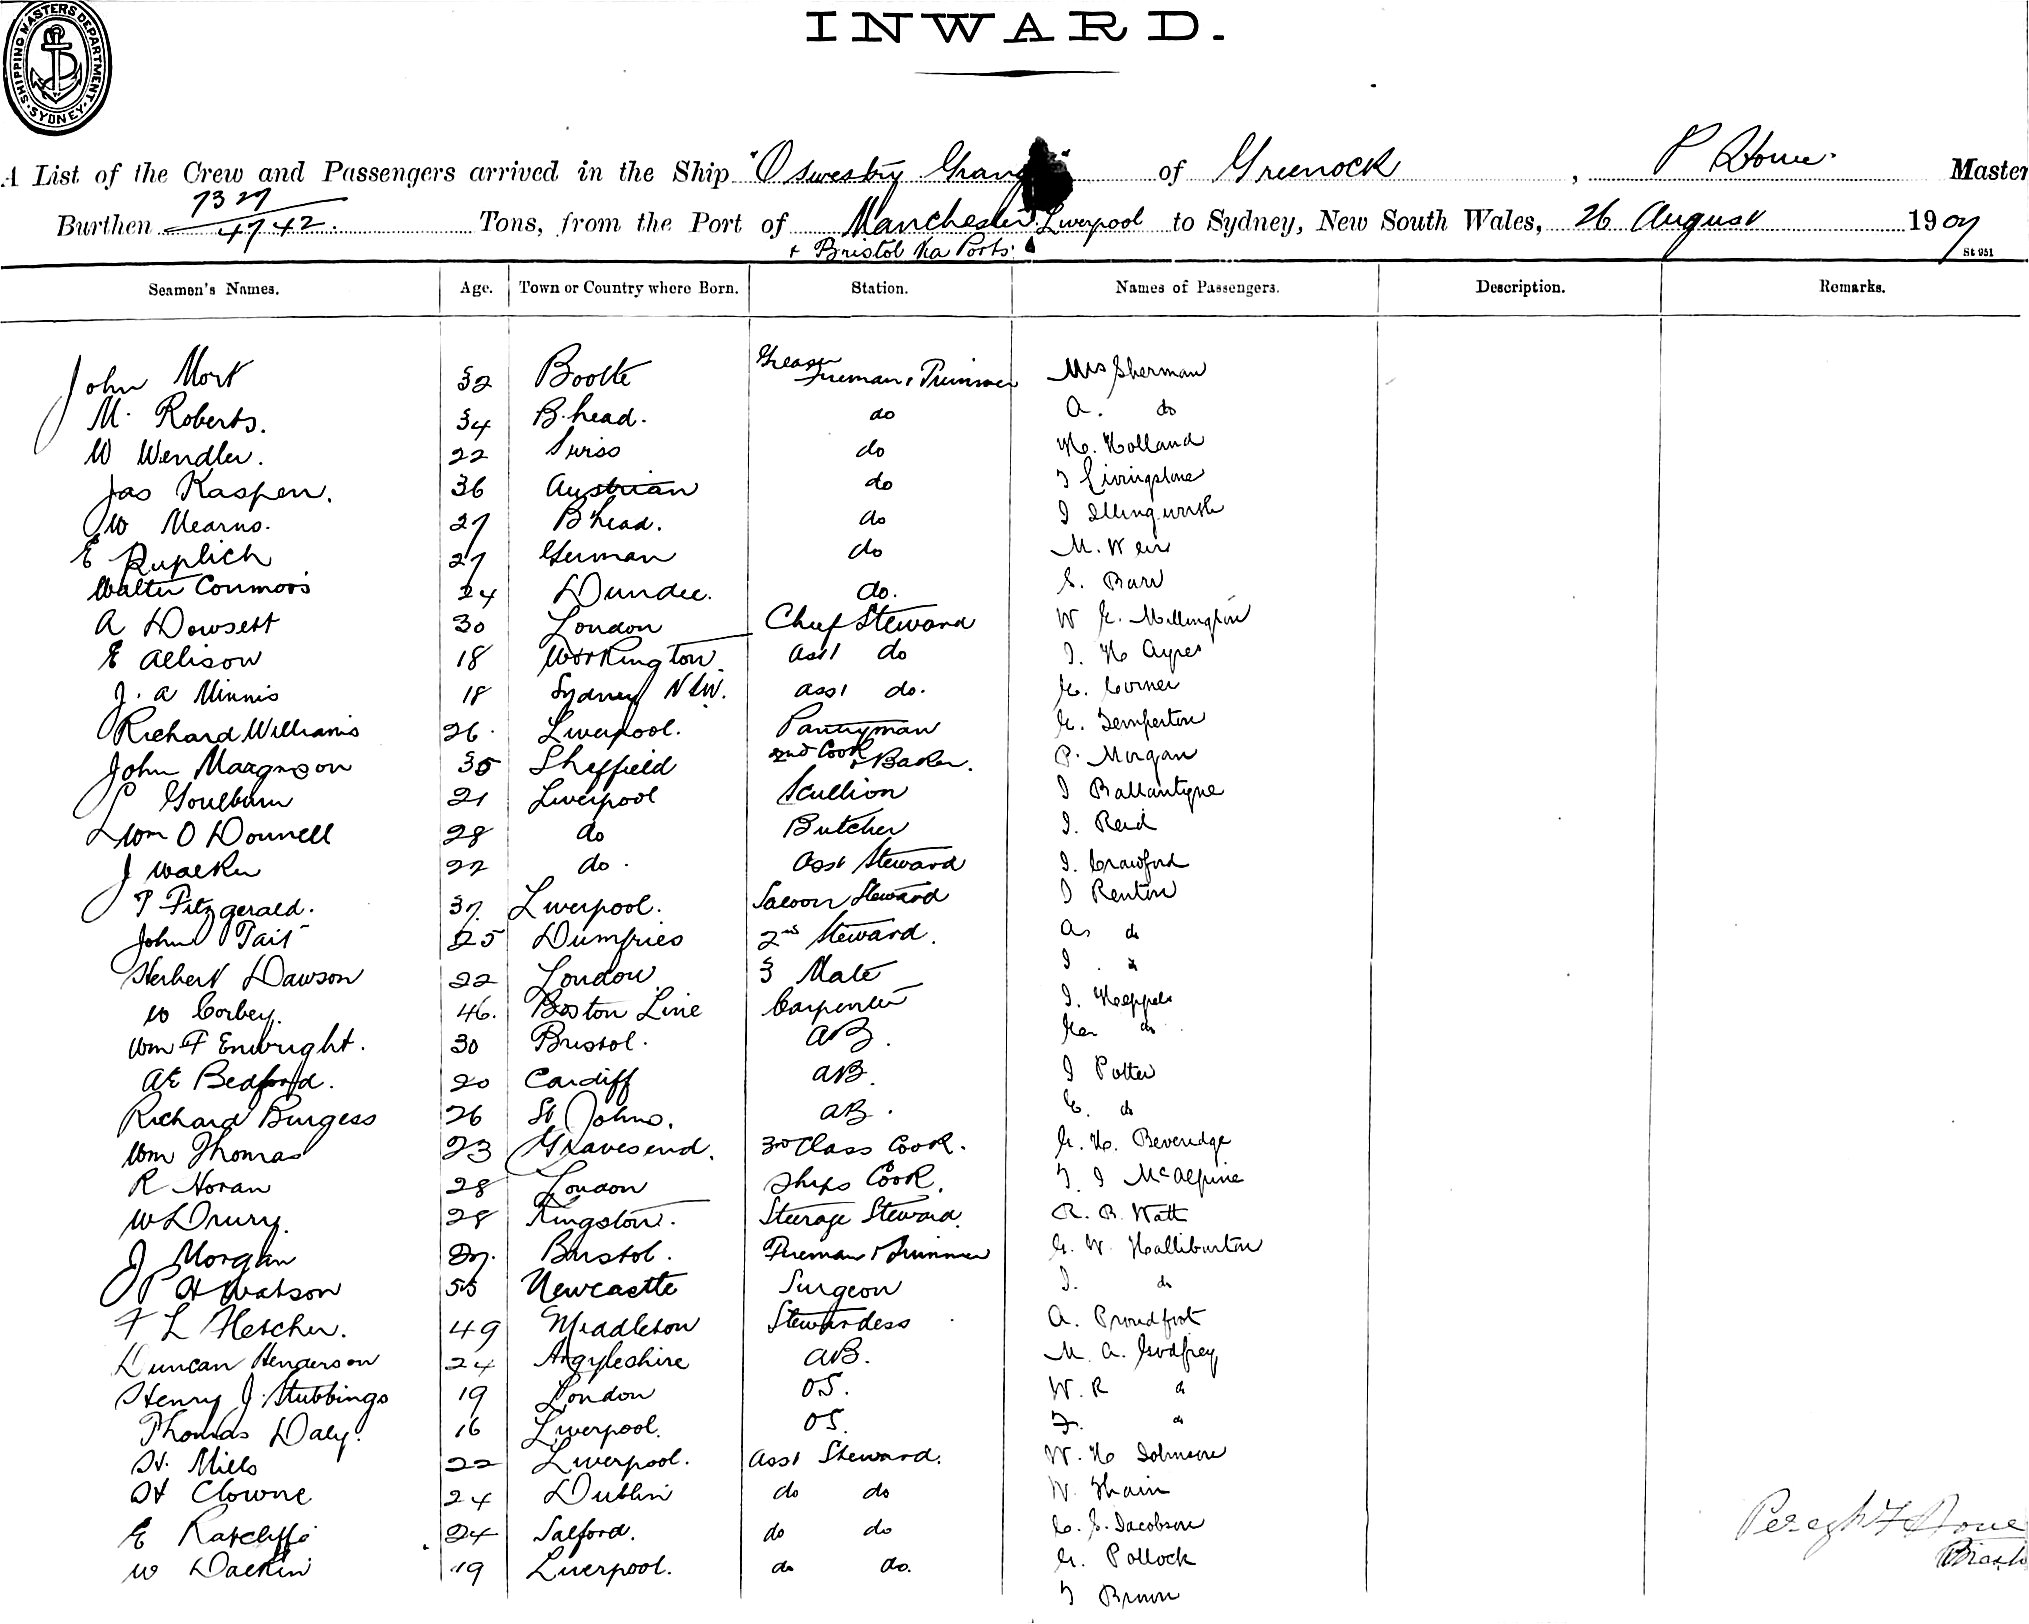 SHIPPING MASTERS DEPARTMENT. SYDNEY
INWARD.
A List of the Crew and Passengers arrived in the Ship "Oswestry Grange" of Greenock, P Howe. Master
Burthen 7327/4742. Tons, from the Port of Manchester, Liverpool to Sydney, New South Wales, 26 August 1907
+ Bristol Via Ports. St 951
Seamen's Names. Age. Town or Country where Born. Station. Names of Passengers. Description. Remarks.
John Mort 32 Bootle Greaser Fireman & Trimmer Mrs Sherman
M. Roberts. 34 B.head. do A. do
W Wendler. 22 Swiss do H. Holland
Jas Kaspen. 36 Austrian do T Livingstone
W Mearns. 27 B'head. do J Illingworth
E Ruplich 27 German do M. Weir
Walter Connors 24 Dundee. do. S. Barr
A Dowsett 30 London Chief Steward W G. Millington
E Allison 18 Workington. Asst do J. H Ayres
J. A Minnis 18 Sydney NSW. Asst do. G. Corner
Richard Williams 26. Liverpool. Pantryman G. Temperton
John Margnson 35 Sheffield 2nd Cook & Baker. P. Morgan
Goulburn 21 Liverpool Scullion J Ballantyne
Wm O Donnell 28 do Butcher J. Reid
J Walker 22 do. Asst Steward J. Crawford
P Fitzgerald. 37. Liverpool. Saloon Steward J Renton
John Tait 25 Dumfries 2nd Steward. A. do
Herbert Dawson 22 London 3 Mate J. do
W Corbey. 46. Boston Line Carpenter J. Heppels
Wm F Enwright. 30 Bristol. AB. Geo do
AE Bedford. 20 Cardiff AB. J Potter
Richard Burgess 26 St Johns. AB. C. do
Wm Thomas 23 Gravesend. 3rd Class Cook. G. H. Beveridge
R Horan 28 London Ships Cook. T. J McAlpine
W Drury. 28 Kingston. Steerage Steward. R. B. Watt
J Morgan 27. Bristol. Fireman & Trimmer G. W. Halliburton
P H Watson 55 Newcastle Surgeon J. do
F L Fletcher. 49 Middleton Stewardess A. Proudfoot
Duncan Henderson 24 Argyleshire AB. M. A. Godfrey
Henry J. Stubbings 19 London OS. W. R do
Thomas Daly. 16 Liverpool. OS. F. do
H. Mills 22 Liverpool. Asst Steward. W. H Johnson
H Clowne 24 Dublin do do W. Thain
E Ratcliffe 24 Salford. do do C. S. Jacobson
W Dackin 19 Liverpool. do do. G. Pollock
T Brown